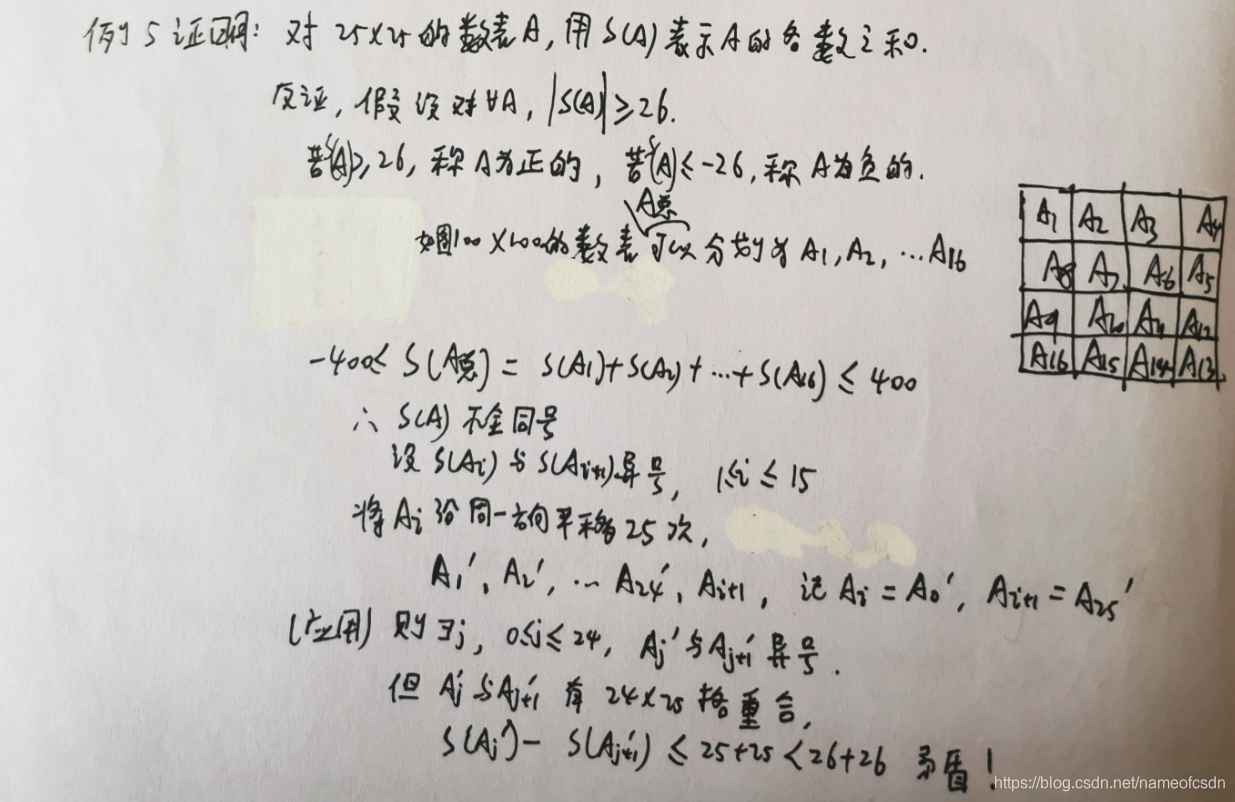 例5 证明: 对 25×25 的数表A, 用 S(A) 表示A的各数之和.
反证, 假设对∀A, |S(A)|≥26.
若S(A)≥26, 称A为正的, 若S(A)≤-26, 称A为负的.
A总
如图100×100的数表可以分划为 A1, A2, …A16
A1 A2 A3 A4
A8 A7 A6 A5
A9 A10 A11 A12
A16 A15 A14 A13
-400≤ S(A总) = S(A1)+S(A2)+…+S(A16) ≤ 400
∴ S(A) 不全同号
设 S(Ai) 与 S(Ai+1)异号, 1≤i≤15
将 Ai 沿同一方向平移25次,
A1′, A2′, … A24′, Ai+1, 记 Ai = A0′, Ai+1 = A25′
(应用) 则∃j, 0≤j≤24, Aj′与Aj+1′异号.
但 Aj′与Aj+1′ 有 24×25 格重合,
S(Aj′) - S(Aj+1′) ≤ 25+25 < 26+26 矛盾!
https://blog.csdn.net/nameofcsdn